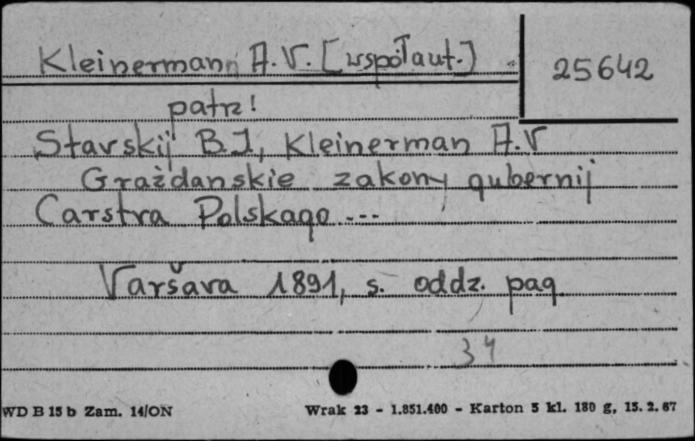 Kleinermann A.V. [współaut.]
25642
patrz!
Stavskij B.I., Kleinerman A.V
Grażdanskie zakony gubernij
Carstva Polskago ---
Varšava 1891, s. oddz. pag
34
WD B 15 b Zam. 14/ON
Wrak 23 - 1.851.400 - Karton 5 kl. 180 g, 15. 2. 67